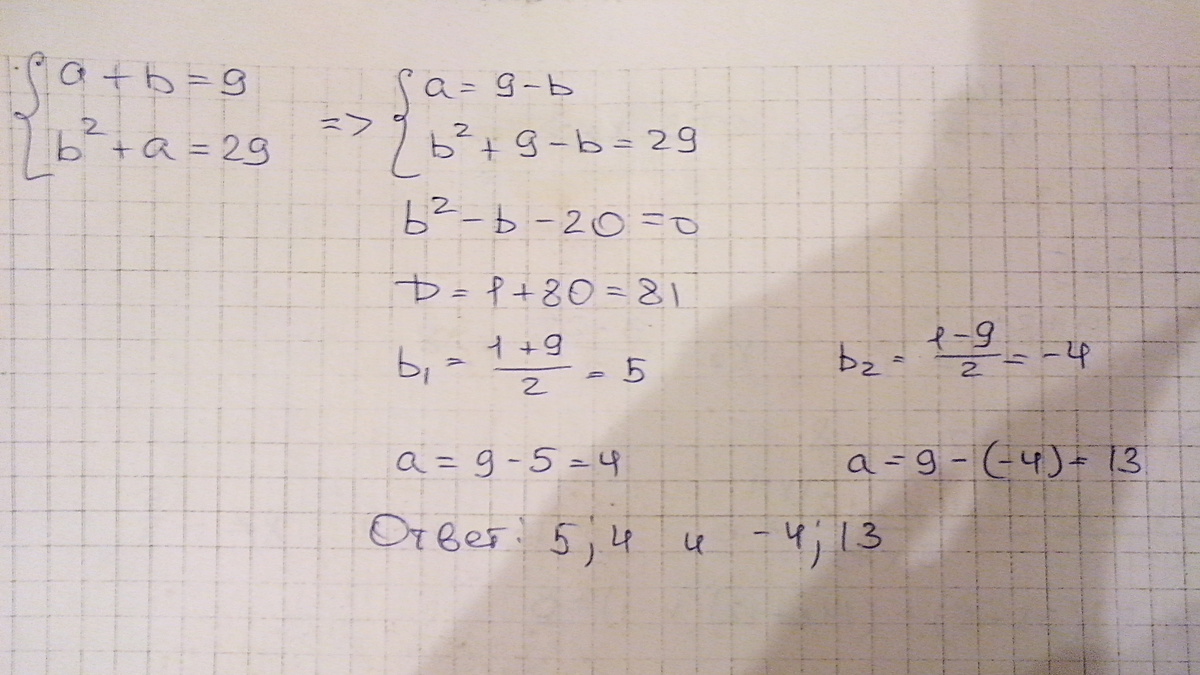 { a + b = 9
b² + a = 29
=> { a = 9 - b
b² + 9 - b = 29
b² - b - 20 = 0
D = 1 + 80 = 81
b₁ = (1 + 9)/2 = 5
b₂ = (1 - 9)/2 = -4
a = 9 - 5 = 4
a = 9 - (-4) = 13
Ответ: 5; 4 и -4; 13